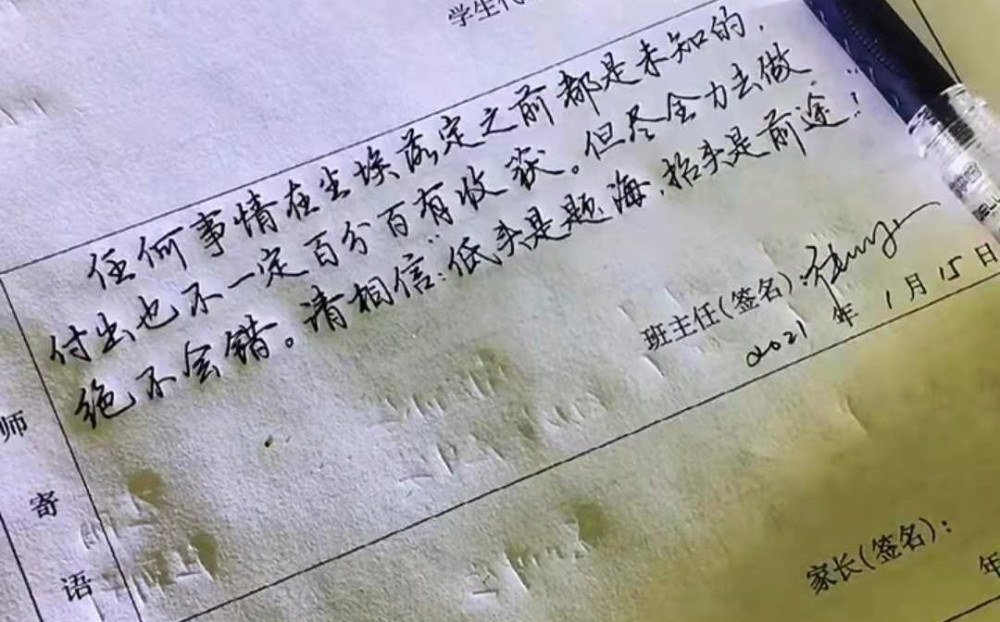 学生代
任何事情在尘埃落定之前都是未知的，
付出也不一定百分百有收获。但尽全力去做
绝不会错。请相信：低头是题海，抬头是前途！
班主任(签名)：
2021年1月15日
师寄语
家长(签名)：
年